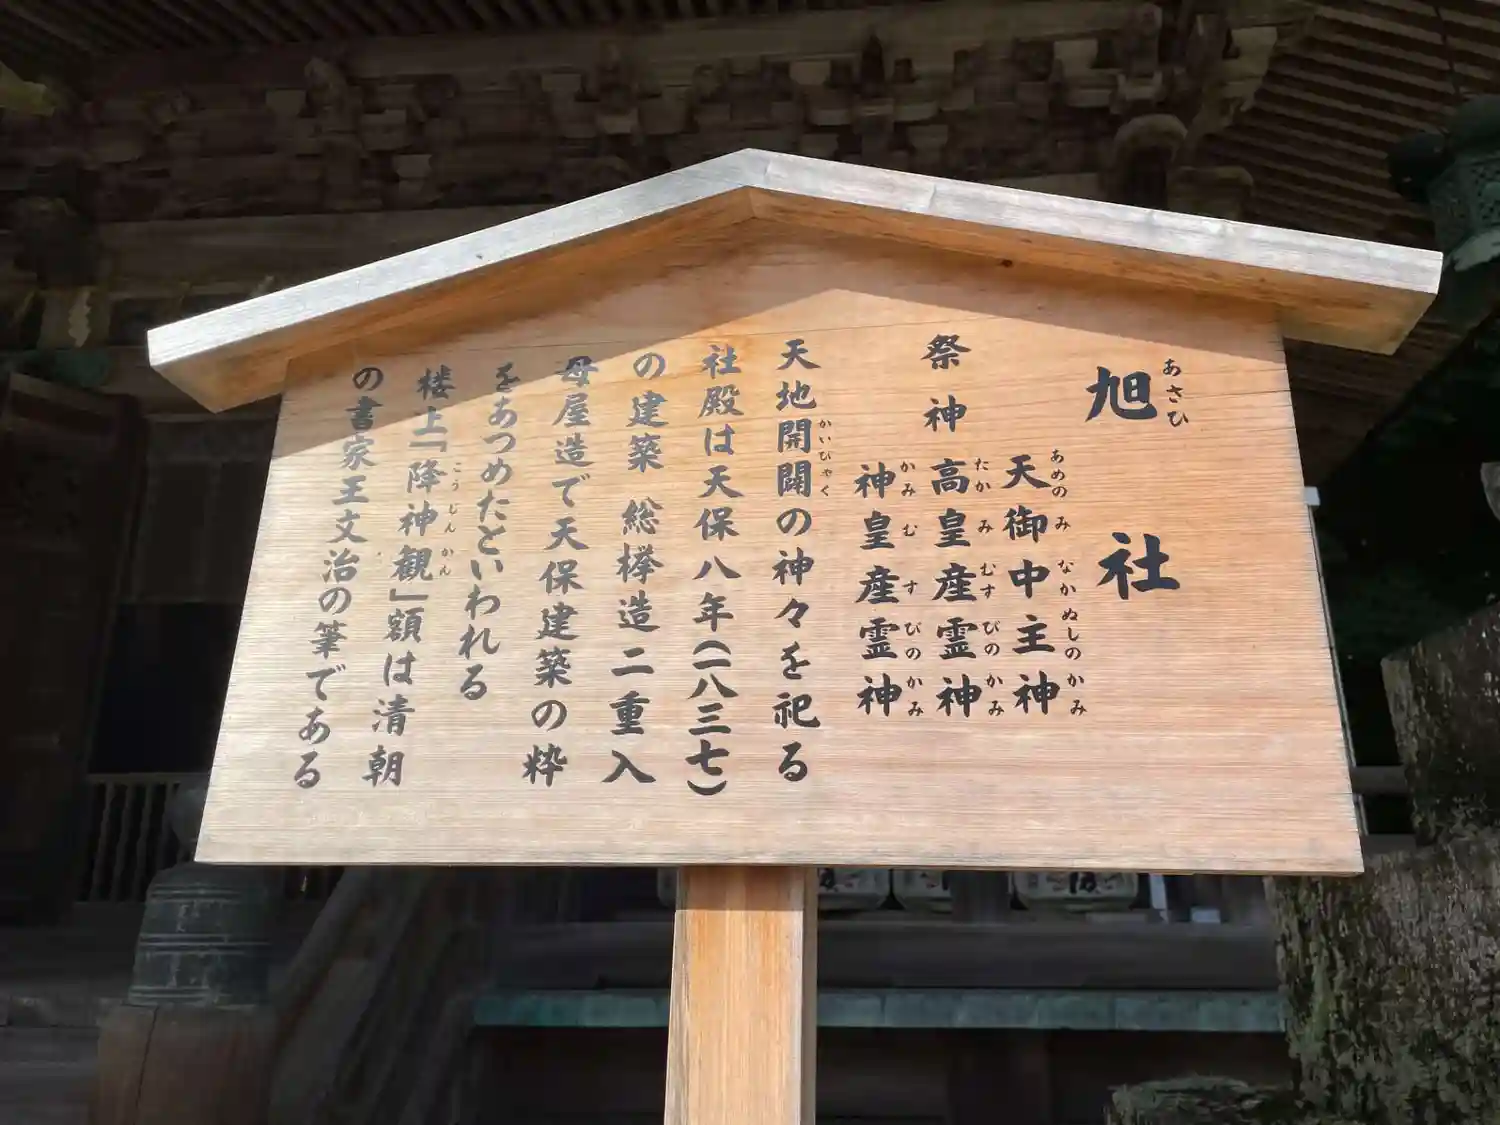 旭社
あさひ
祭神
天御中主神
あめのみなかぬしのかみ
高皇産霊神
たかみむすびのかみ
神皇産霊神
かみむすびのかみ
天地開闢の神々を祀る
かいびゃく
社殿は天保八年(一八三七)
の建築 総欅造二重入
母屋造で天保建築の粋
をあつめたといわれる
楼上「降神観」額は清朝
こうじんかん
の書家王文治の筆である